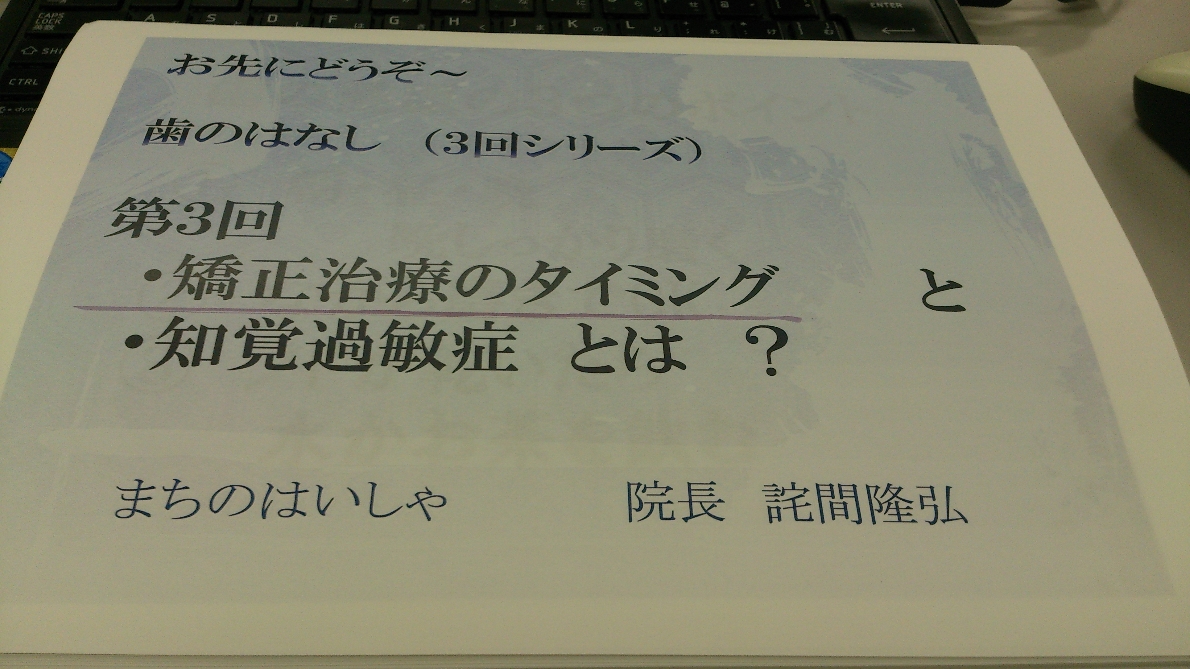 CAPS LOCK 英数
A S D F G H J K L
ENTER
SHI
CTRL
お先にどうぞ～
歯のはなし （3回シリーズ）
第3回
・矯正治療のタイミング と
・知覚過敏症 とは ？
まちのはいしゃ 院長 詫間隆弘